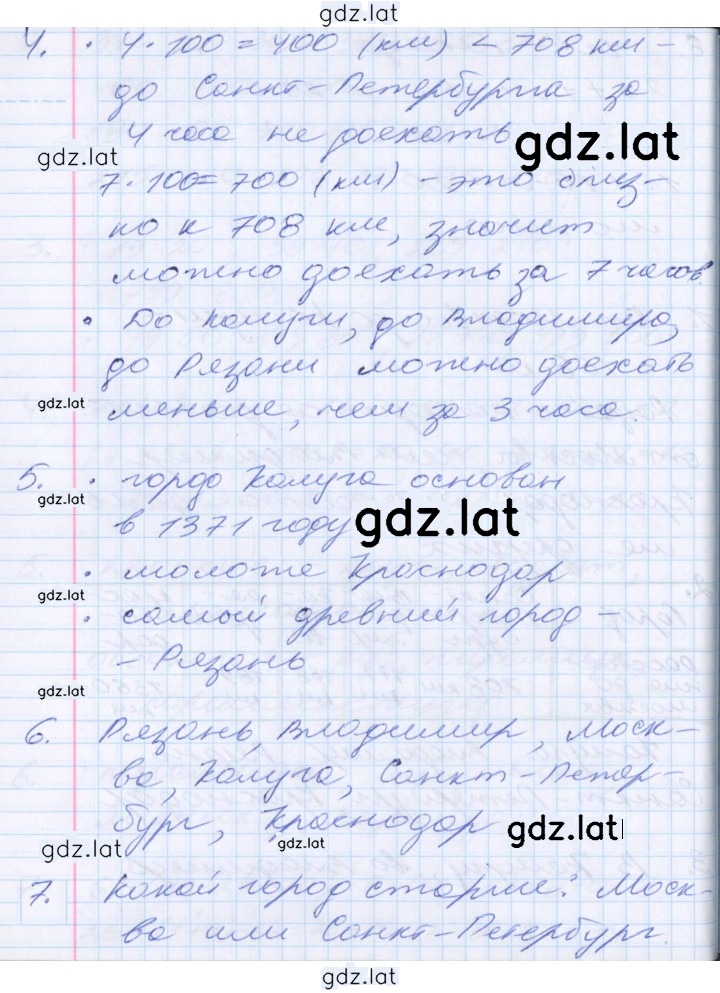 gdz.lat
4. · 4·100 = 400 (км) < 708 км –
до Санкт-Петербурга за
4 часа не доехать
gdz.lat
gdz.lat
7·100= 700 (км) – это близ-
ко к 708 км, значит
можно доехать за 7 часов.
· До Калуги, до Владимира,
до Рязани можно доехать
gdz.lat
меньше, чем за 3 часа.
5. · город Калуга основан
gdz.lat
в 1371 году
gdz.lat
· моложе Краснодар
gdz.lat
· самый древний город –
– Рязань
gdz.lat
6. Рязань, Владимир, Моск-
ва, Калуга, Санкт-Петер-
бург, Краснодар
gdz.lat
gdz.lat
gdz.lat
7. Какой город старше: Моск-
ва или Санкт-Петербург.
gdz.lat